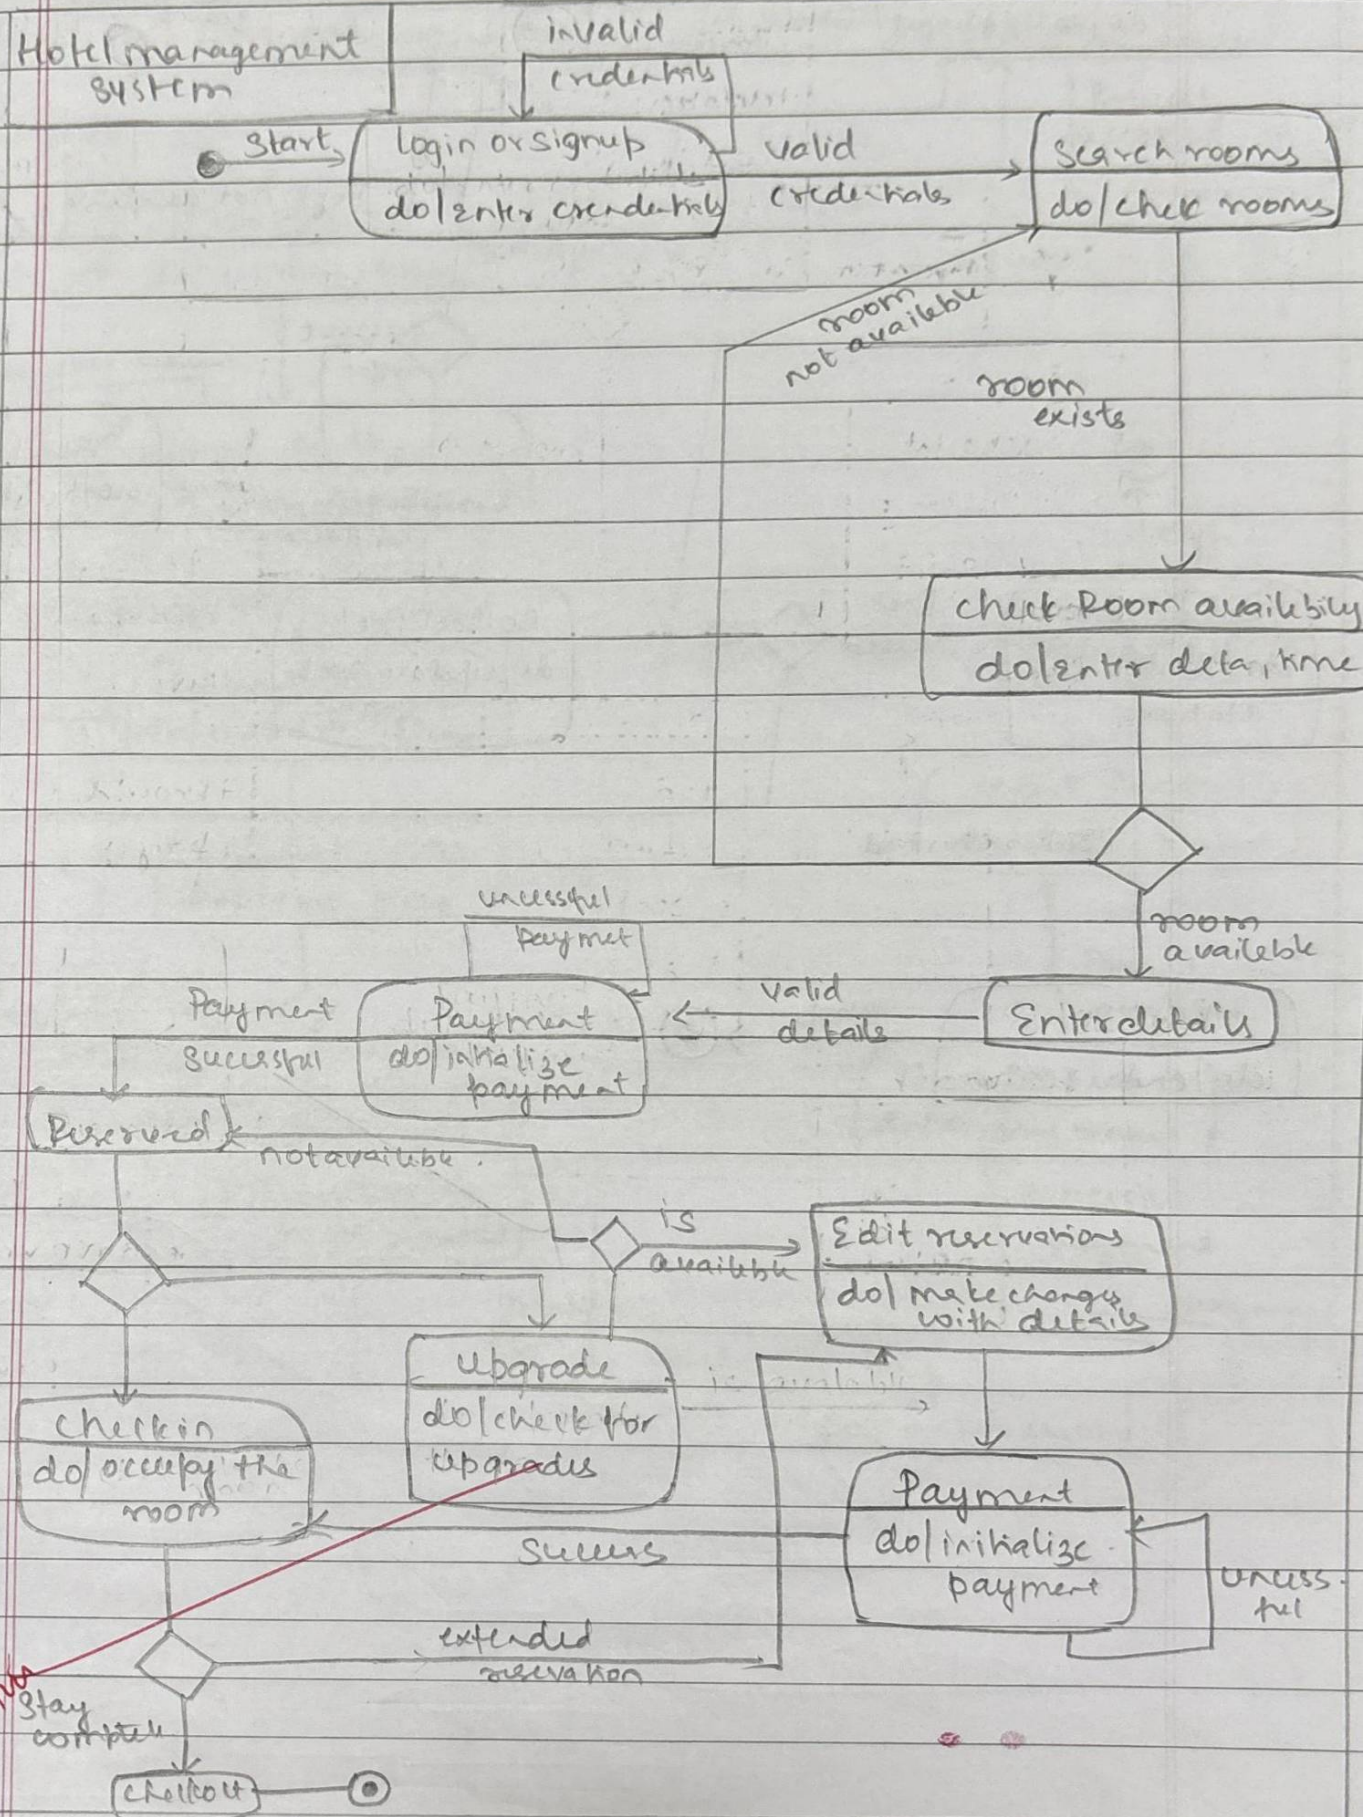 Hotel management
system
invalid
credentials
Start
login or signup
do/enter crendentials
valid
credentials
Search rooms
do/chek rooms
room
not available
room
exists
check Room availibily
do/enter deta, time
room
available
uncessful
paymet
Payment
sucessful
Payment
do/initialize
payment
valid
details
Enter details
Reserved
not available.
is
available
Edit reservations
do/ make changes
with details
upgrade
do/check for
upgrades
checkin
do/occupy the
room
success
Payment
do/initialize
payment
uncess-
ful
extended
resevation
Stay
complete
checkout